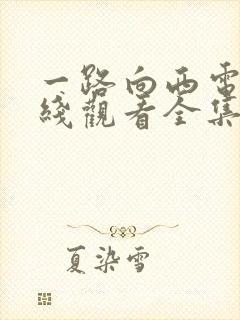 一路向西電
綫觀看全集
夏染雪